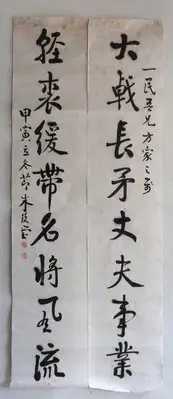 一民吾兄方家之属
大戟長矛丈夫事業
輕裘緩帶名將風流
甲寅立冬節朱